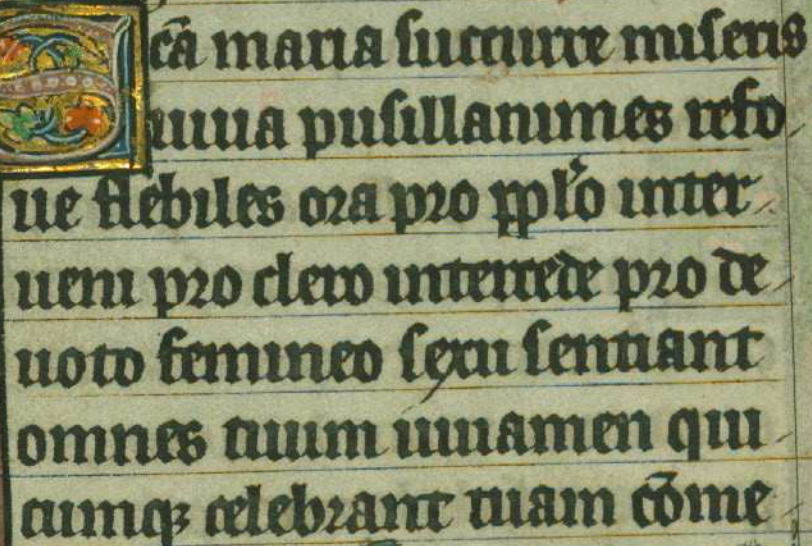 Scā maria succurre miseris
iuua pusillanimes refo
ue flebiles ora pro pplo inter
ueni pro clero intercede pro de
uoto femineo sexu sentiant
omnes tuum iuuamen qui
cumqꝫ celebrant tuam cōme